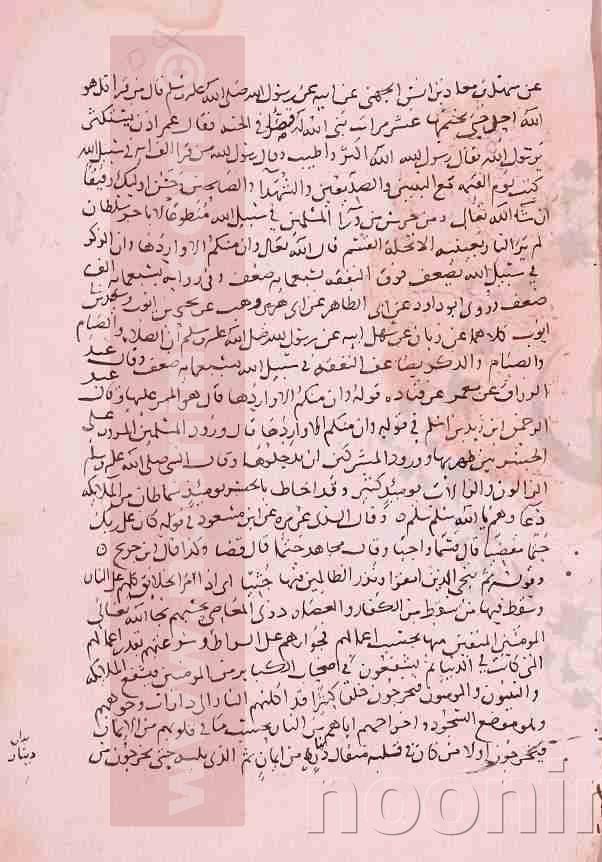 عن سهل بن معاذ بن انس الجهني عن ابيه عن رسول الله صلى الله عليه وسلم قال من قرا قل هو
الله احد حتى يختمها عشر مرات بنى الله له قصرا في الجنة فقال عمر اذن نستكثر
يرسول الله فقال رسول الله الله اكثر واطيب وقال رسول الله من قرا الف اية في سبيل الله
كتب يوم القيمة مع النبيين والصديقين والشهدا والصالحين وحسن اوليك رفيقا
ان شا الله تعالى ومن حرس من ورا المسلمين في سبيل الله متطوعا لا باجر سلطان
لم ير النار بعينيه الا تحلة القسم قال الله تعالى وان منكم الا واردها وان الذكر
في سبيل الله يضعف فوق النفقة بسبعماية ضعف وفي رواية بسبعماية الف
ضعف وروى ابو داود عن ابي الطاهر عن ابن وهب عن يحيى بن ايوب وسعيد بن
ايوب كلاهما عن زبان عن سهل عن ابيه عن رسول الله صلى الله عليه وسلم ان الصلاة والصيام
والذكر يضاعف النفقة في سبيل الله بسبعماية ضعف وقال عبد
الرزاق عن معمر عن قتاده قوله وان منكم الا واردها قال هو الممر عليها وقال عبد
الرحمن ابن زيد بن اسلم في قوله وان منكم الا واردها قال ورود المسلمين المرور على
الجسر بين ظهريها وورود المشركين ان يدخلوها وقال النبي صلى الله عليه وسلم
الزالون والزالات يومئذ كثير وقد احاط بالجسر يومئذ سماطان من الملايكة
دعاوهم يا الله سلم سلم وقال السدي عن مره عن ابن مسعود في قوله كان على ربك
حتما مقضيا قال قسما واجبا وقال مجاهد حتما قال قضا وكذا قال ابن جريج
وقوله ثم ننجي الذين اتقوا ونذر الظالمين فيها جثيا اي اذا مر الخلايق كلهم على النار
وسقط فيها من سقط من الكفار والعصاه ذوي المعاصي بحسبهم نجا الله تعالى
المومنين المتقين منها بحسب اعمالهم فجوازهم على الصراط وسرعتهم بقدر اعمالهم
التي كانت في الدنيا ثم يشفعون في اصحاب الكباير من المومنين فيشفع الملايكة
والنبيون والمومنون فيخرجون خلقا كثيرا قد اكلتهم النار الا دارات وجوههم
وهو موضع السجود واخراجهم اياهم من النار بحسب ما في قلوبهم من الايمان
فيخرجون اولا من كان في قلبه مثقال من ايمان ثم الذي يليه حتى يخرجون من
دينار
noornr